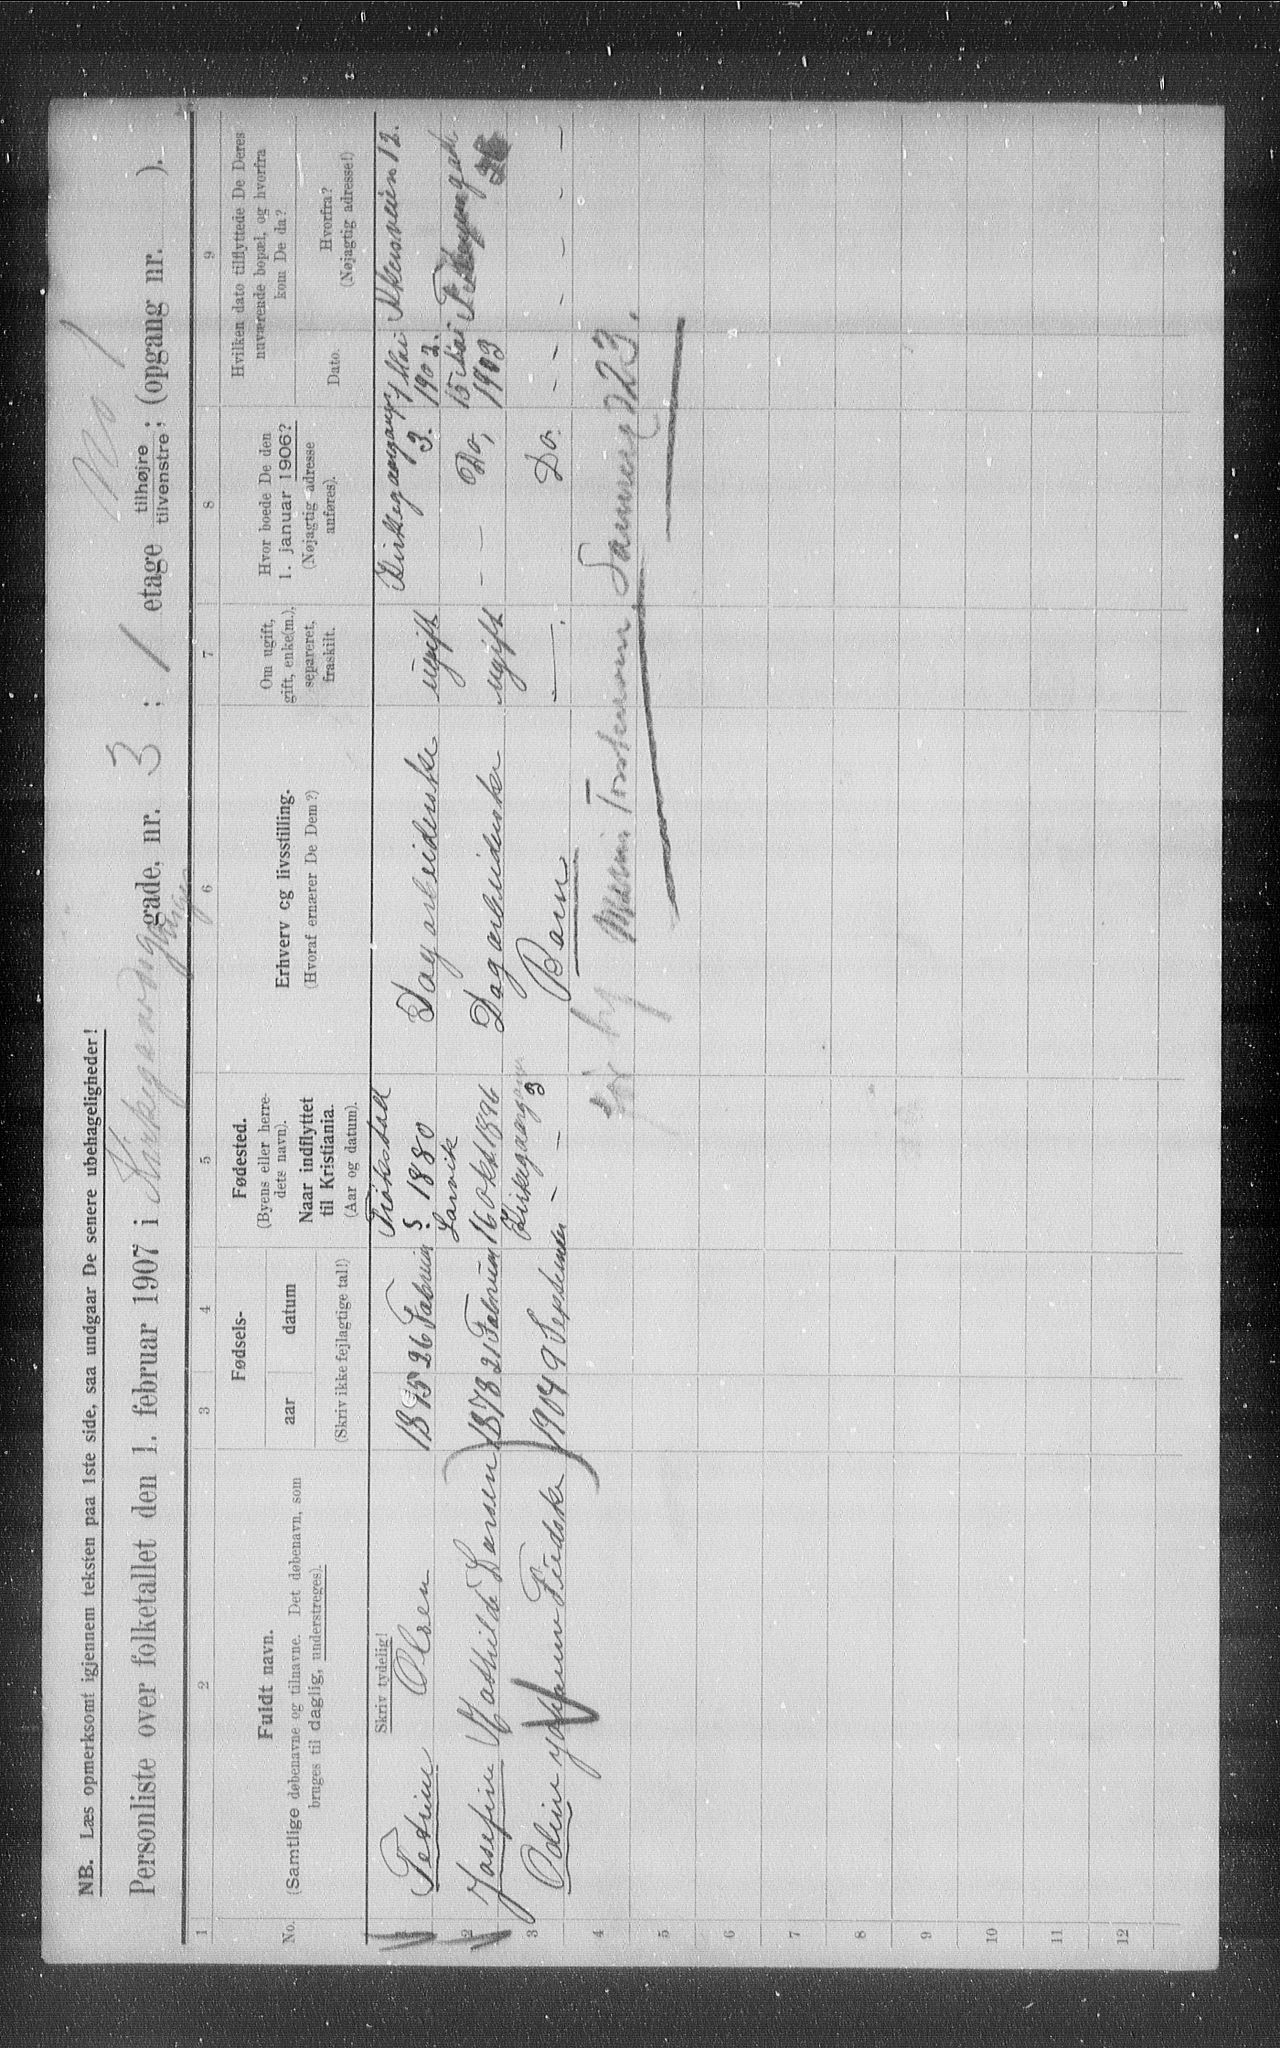 NB. Læs opmerksomt igjennem teksten paa 1ste side, saa undgaar De senere ubehageligheder!
No 1
Personliste over folketallet den 1. februar 1907 i Kirkegaards gade, nr. 3 : 1 etage tilhøjre tilvenstre; (opgang nr. ).
1 2 3 4 5 6 7 8 9
No.
Fuldt navn.
(Samtlige døbenavne og tilnavne. Det døbenavn, som
bruges til daglig, understreges).
Fødsels-
aar
datum
(Skriv ikke fejlagtige tal!)
Fødested.
(Byens eller herre-
dets navn).
Naar indflyttet
til Kristiania.
(Aar og datum).
Erhverv og livsstilling.
(Hvoraf ernærer De Dem?)
Om ugift,
gift, enke(m.),
separeret,
fraskilt.
Hvor boede De den
1. januar 1906?
(Nøjagtig adresse
anføres).
Hvilken dato tilflyttede De Deres
nuværende bopæl, og hvorfra
kom De da?
Dato.
Hvorfra?
(Nøjagtig adresse!)
Skriv tydelig!
1 Petrine Olsen 1875 26 Februar Trøkstad 1880 Dagarbeiderske ugift 3. Mai 1903. Akersveien 12.
2 Josefine Mathilde Larsen 1878 21 Februar Larvik 16 Okt 1896 Dagarbeiderske ugift - - Do, 15 Mai 1903
3 Odin Johann Fredrik 1904 9 September Kirkegaardsg 3 - - Barn — . Do. - - - - - -
4 hj Marin Torstensen, Sannerg 23.
5
6
7
8
9
10
11
12